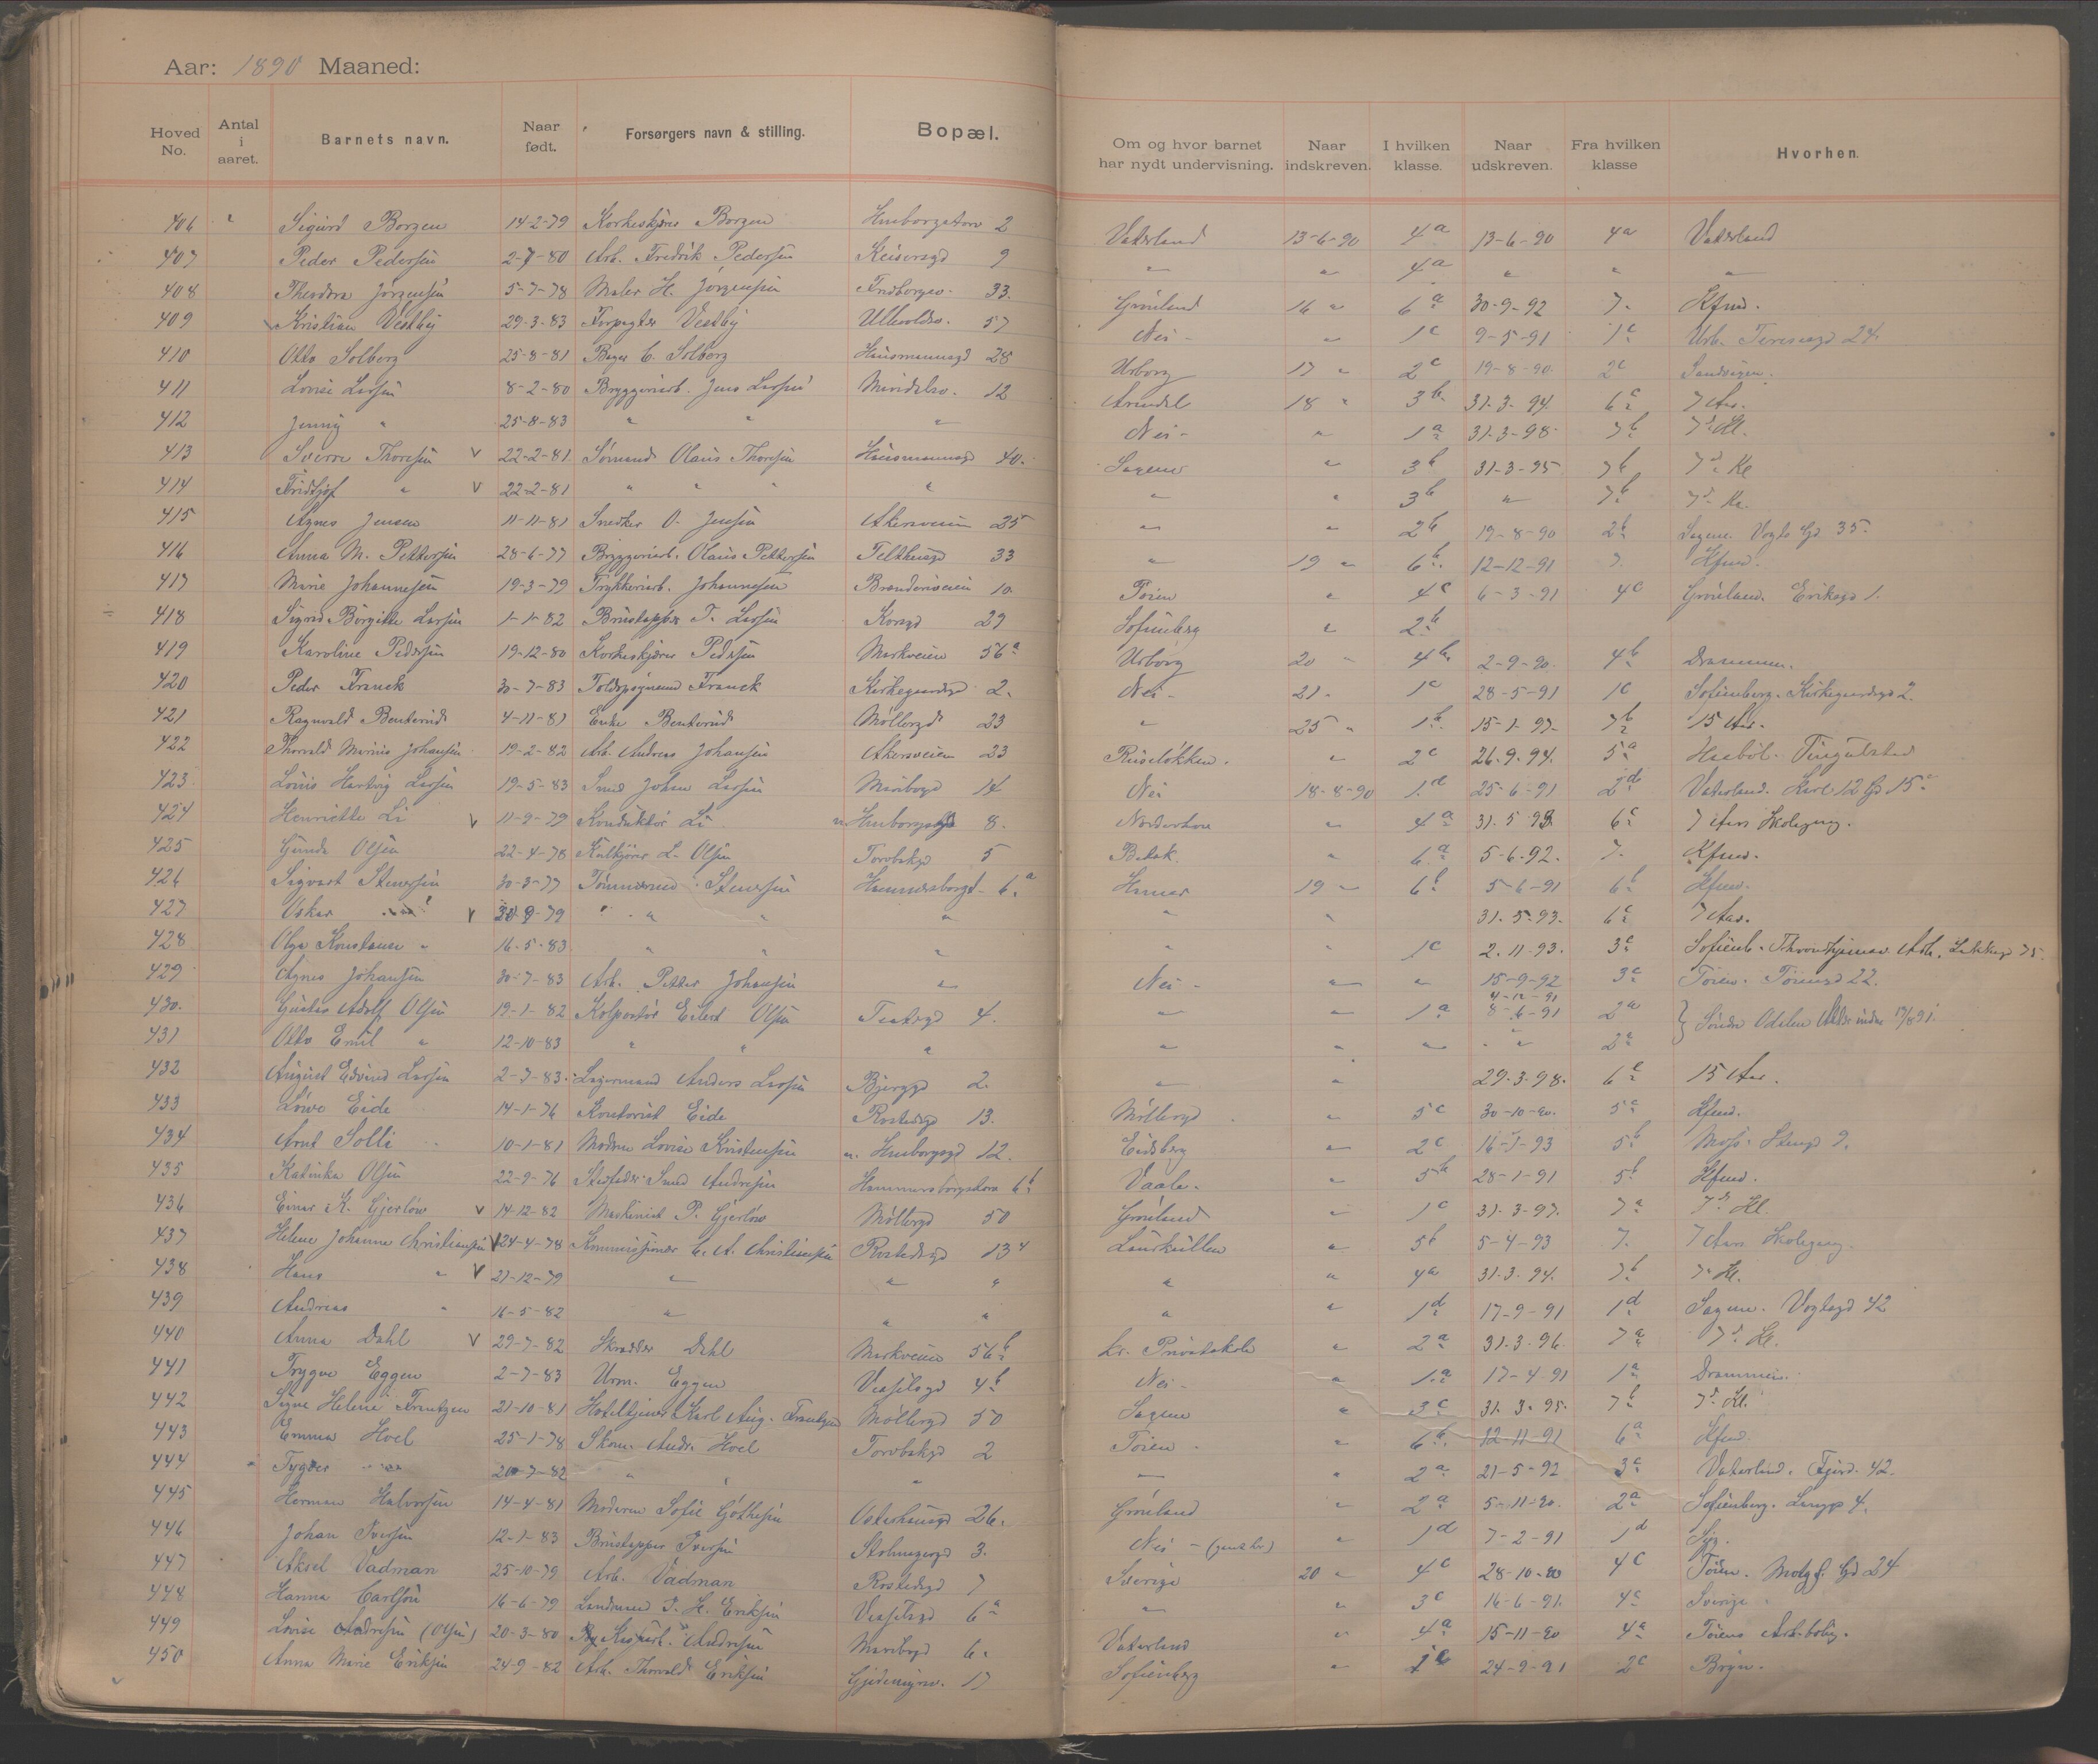 Aar: 1890 Maaned:
Hoved No. Antal i aaret. Barnets navn. Naar født. Forsørgers navn & stilling. Bopæl. Om og hvor barnet har nydt undervisning. Naar indskreven. I hvilken klasse. Naar udskreven. Fra hvilken klasse Hvorhen.
406 " Sigurd Borgen 14-2-79 Korkeskjærer Borgen 2 Vaterland 13-6-90 4a 13-6-90 4a Vaterland
407 Peder Pedersen 2-7-80 Arb. Fredrik Pedersen Keisersgd 9 " " 4a " " "
408 Theodora Jørgensen 5-7-78 Maler H. Jørgensen 33. Grønland 16 " 6a 30-9-92 7. Kfmd.
409 Kristian Vestby 29-3-83 Forpagter Vestby Ullevoldsv. 57 Nei - " 1c 9-5-91 1c 24.
410 Otto Solberg 25-8-81 Bager C. Solberg Hausmannsgd 28 17 " 2c 19-8-90 2c Sandvigen.
411 Lovise Larsen 8-2-80 Bryggeriarb. Jens Larsen 12 Arendal 18 " 3b 31-3-94. 6c 7 Aar.
412 Jenny " 25-8-83 " " " Nei - " 1a 31-3-98. 7b 7de Kl.
413 Sverre Thoresen V 22-2-81 Sømand Olaus Thoresen Hausmannsgd 40. Sagene " 3b 31-3-95 7b 7de Kl
414 Fridtjof " V 22-2-81 " " " " " " 3b " 7b 7de Kl.
415 Agnes Jensen 11-11-81 Snedker O. Jensen Akersveien 25 " " 2b 19-8-90 2b Sagene. Vogts Gd 35.
416 Anna M. Pettersen 28-6-77 Bryggeriarb. Olaus Pettersen Telthusgd 33 " 19 " 6b. 12-12-91 7. Kfmd.
417 Marie Johannesen 19-3-79 Trykkeriarb. Johannesen 10 Tøien " 4c 6-3-91 4c Grønland. Eriksgd 1.
418 Sigrid Borgitte Larsen 1-1-82 Brustapper T. Larsen Korsgd 29 Sofienberg " 2b
419 Karoline Pedersen 19-12-80 Korkeskjærer Pedersen Markveien 56a 20 - 4b. 2-9-90. 4b Drammen.
420 Peder Franck 30-7-83 Toldopsynsmand Franck Kirkegaardsgd 2. Nei - 21 - 1c 28-5-91 1c Sofienberg. Kirkegaardsgd 2.
421 Ragnvald Benterud 4-11-81 Enke Benterud Møllergd 23 " 25 " 1b. 15-1-97. 7b 15 Aar.
422 Thorvald Marius Johansen 19-2-82 Arb. Andreas Johansen Akersveien 23 Ruseløkken. " 2c 26.9.94. 5a Tingulstad
423 Louis Hartvig Larsen 19-5-83 Smed Johan Larsen Maribogd 14 Nei 18-8-90 1.d 25-6-91 2d Vaterland. Karl 12 Gd 15c
424 Henriette Li V 11-9-79 Konduktør Li 8. Norderhov " 4a 31.5.93. 6c 7 Aars Skolegang.
425 Gunda Olsen 22-4-78 Kulkjører L. Olsen Torvbakgd 5 Betsk. " 6a 5-6-92. 7. Kfmd.
426 Sigvart Stenersen 30-3-77 Tømmermd. Stenersen Hammersborgt. 6.a Hamar 19 - 6b 5-6-91 6b Kfmd.
427 Oskar " V 30-9-79 " " " " " " 31.5.93. 6c 7 Aar.
428 Olga Konstanse " 16-5-83 " " " " " 1c 2.11-93. 3c Sofienb. 75.
429 Agnes Johansen 30-7-83 Arb. Petter Johansen " Nei - " " 15-9-92 3c Tøien. Tøiengd 22.
4-12-91
430. Gustav Adolf Olsen 19-1-82 Kolportør Edvard Olsen 4. " " 1a 8-6-91 2a } Søndre Odalen 19/8 91.
431 Otto Emil " 12-10-83 " " " " " " " " 2a
432 August Edvard Larsen 2-7-83. Lagermand Anders Larsen Bjerggd 2. " " 29.3.98. 6c 15 Aar.
433 Løwe Eide 14-1-76 Kontorist Eide Rostedsgd 13. Møllergd " 5c 30-10-90. 5c Kfmd.
434 Arnt Solli 10-1-81 Modren Lovise Kristensen n. 12. Eidsberg " 2c 16-1-93 5b Moss. 9.
435 Katinka Olsen 22-9-76 Stedfader Smed Andresen Hammersborgtorv 6b Vaale. " 5b 28-1-91 5b Kfmd.
436 Einar K. Gjerløw V 14-12-82 Maskinist P. Gjerløw Møllergd 50 Grønland " 1c 31-3-97. 7a 7de Kl.
437 Helene Johanne Christiansen V 24-4-78 Kommisjonær C. A. Christiansen Rostedsgd 13 " 5b 5-4-93 7. 7 Aars Skolegang.
438 Hans " V 21-12-79 " " " " " 4a 31.3.94. 7b 7de Kl.
439 Andreas " 16-5-82 " " " " " 1d 17-9-91 1d Sagene. Vogtsgd 42
440 Anna Dahl V 29-7-82 Skrædder Dahl Markveien 56b Kr. Privatskole " 2a 31.3.96. 7a 7de Kl.
441 Trygve Eggen 2-7-83 Urm. Eggen 4b Nei - " 1.a 17-4-91 1a Drammen.
442 Signe Helene Frantzen 21-10-81 Hoteltjener Karl Aug. Frantzen Møllergd 50 Sagene " 3c 31.3.95. 7b 7de Kl.
443 Emma Hoel 25-1-78 Skom. Andr. Hoel Torvbakgd 2 Tøien. " 6b. 12-11-91 6a Kfmd.
444 " 20-7-82 " " " " " 2a 21-5-92 3c Vaterland. 42.
445 Herman Halvorsen 14-4-81 Moderen Sofie Gøthesen Osterhausgd 26. Grønland " 2a 5-11-90. 2a Sofienberg. 4.
446 Johan Iversen 12-1-83 Brustapper Iversen Stolmagergd 3. Nei - " 1d 7-2-91 1d
447 Aksel Vadman 25-10-79 Arb. Vadman Rostedsgd 7 Sverige 20 " 4c 28-10-90 4c Tøien. Gd 24
448 Hanna Carlson 16-6-79 Landmand P. H. Eriksen 6a " " 3c 16-6-91. 4c Sverige "
449 Lovise Andresen (Olsen) 20-3-80 Andresen Maribogd 6. Vaterland " 4a 15-11-90 4a Tøiens Arb.bolig.
450 Anna Marie Eriksen 24-9-82 Arb. Thorvald Eriksen 17 Sofienberg " 1c 24-9-91 2c Bryn.